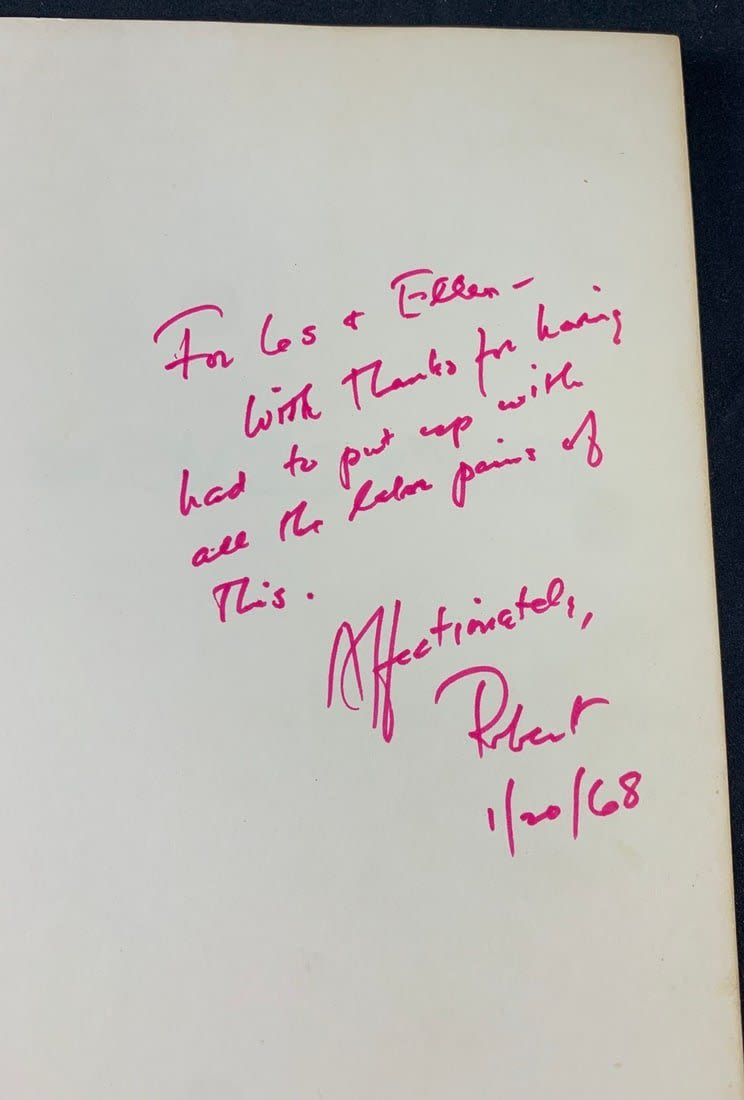 For Les & Ellen –
With thanks for having
had to put up with
all the labor pains of
this.
Affectionately,
Robert
1/20/68